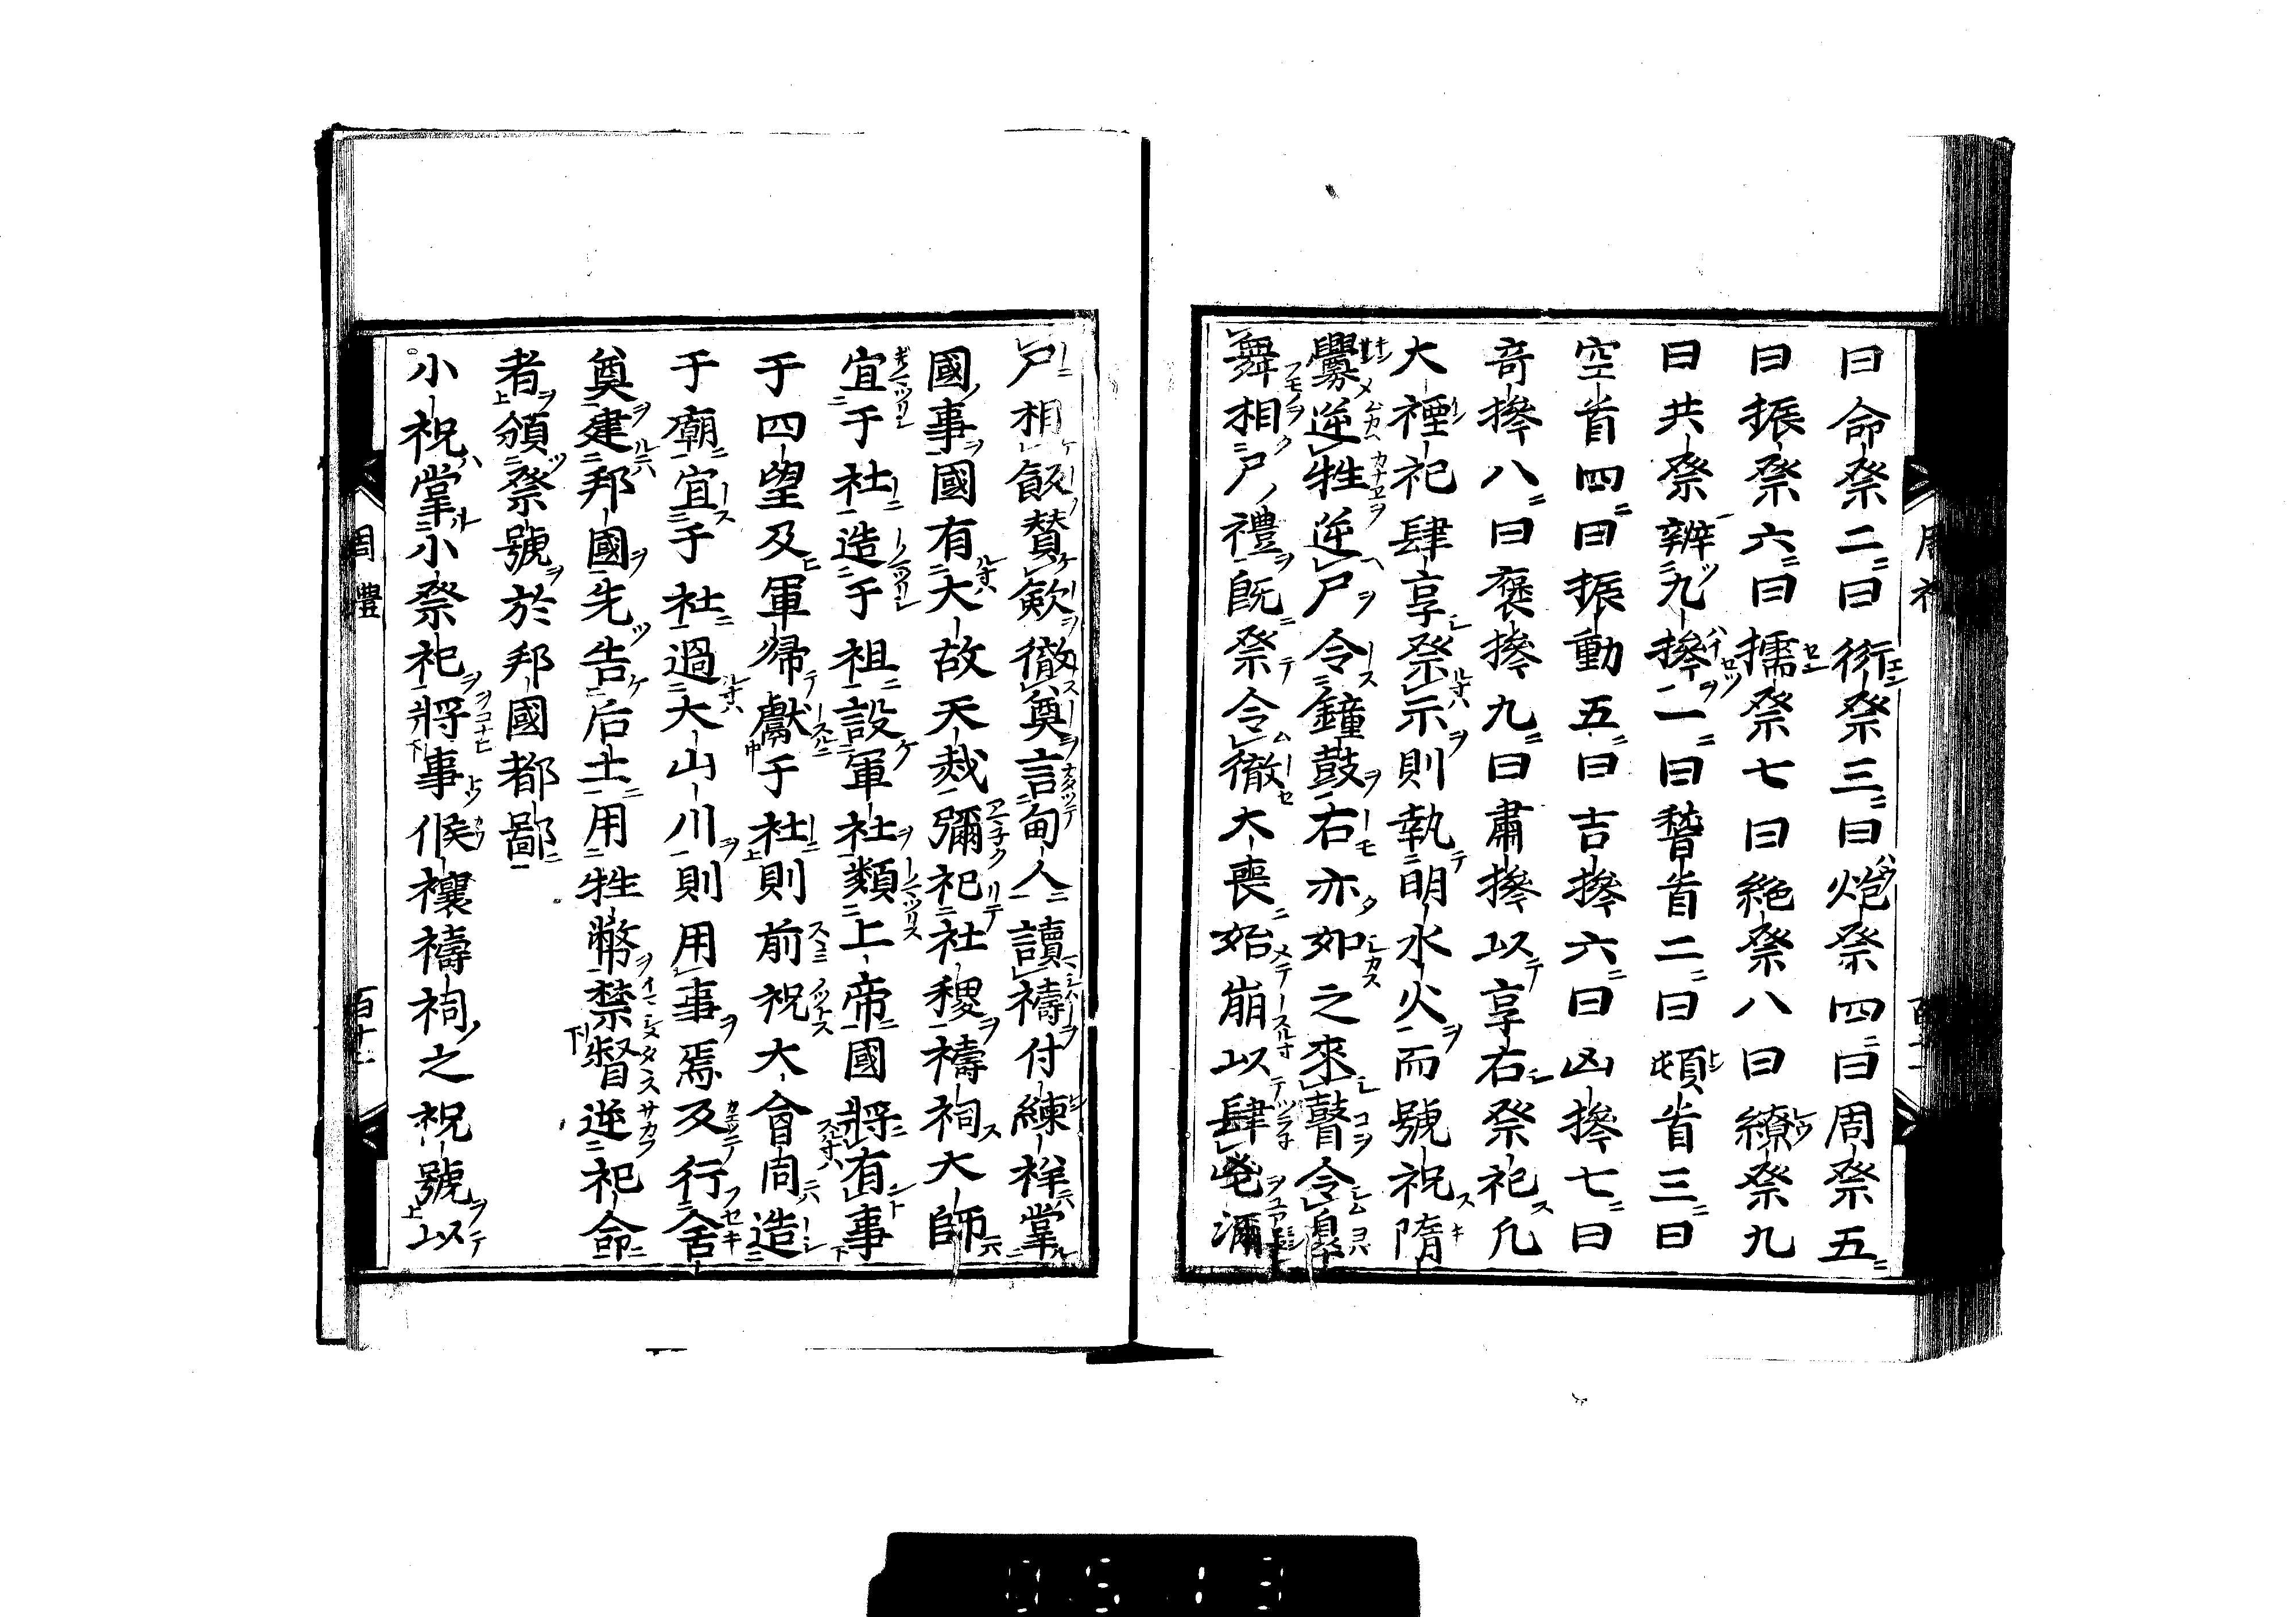 曰命祭二曰衍祭三曰炮祭四曰周祭五
曰振祭六曰擩祭七曰絶祭八曰繚祭九
曰共祭辨九𢷎一曰䭫首二曰頓首三曰
空首四曰振動五曰吉𢷎六曰凶𢷎七曰
竒𢷎八曰襃𢷎九曰肅𢷎以享右祭祀凡
大禋祀肆享祭示則執明水火而號祝隋
釁逆牲逆尸令鐘鼓右亦如之來瞽令臯
舞相尸禮既祭令徹大喪始崩以肆鬯渳
尸相飯賛斂徹奠言甸人讀禱付練祥掌
國事國有大故天烖彌祀社稷禱祠大師
宜于社造于祖設軍社類上帝國將有事
于四望及軍歸獻于社則前祝大會同造
于廟宜于社過大山川則用事焉反行舍
奠建邦國先告后土用牲幣禁督逆祀命
者頒祭號於邦國都鄙
小祝掌小祭祀將事侯禳禱祠之祝號以
周禮